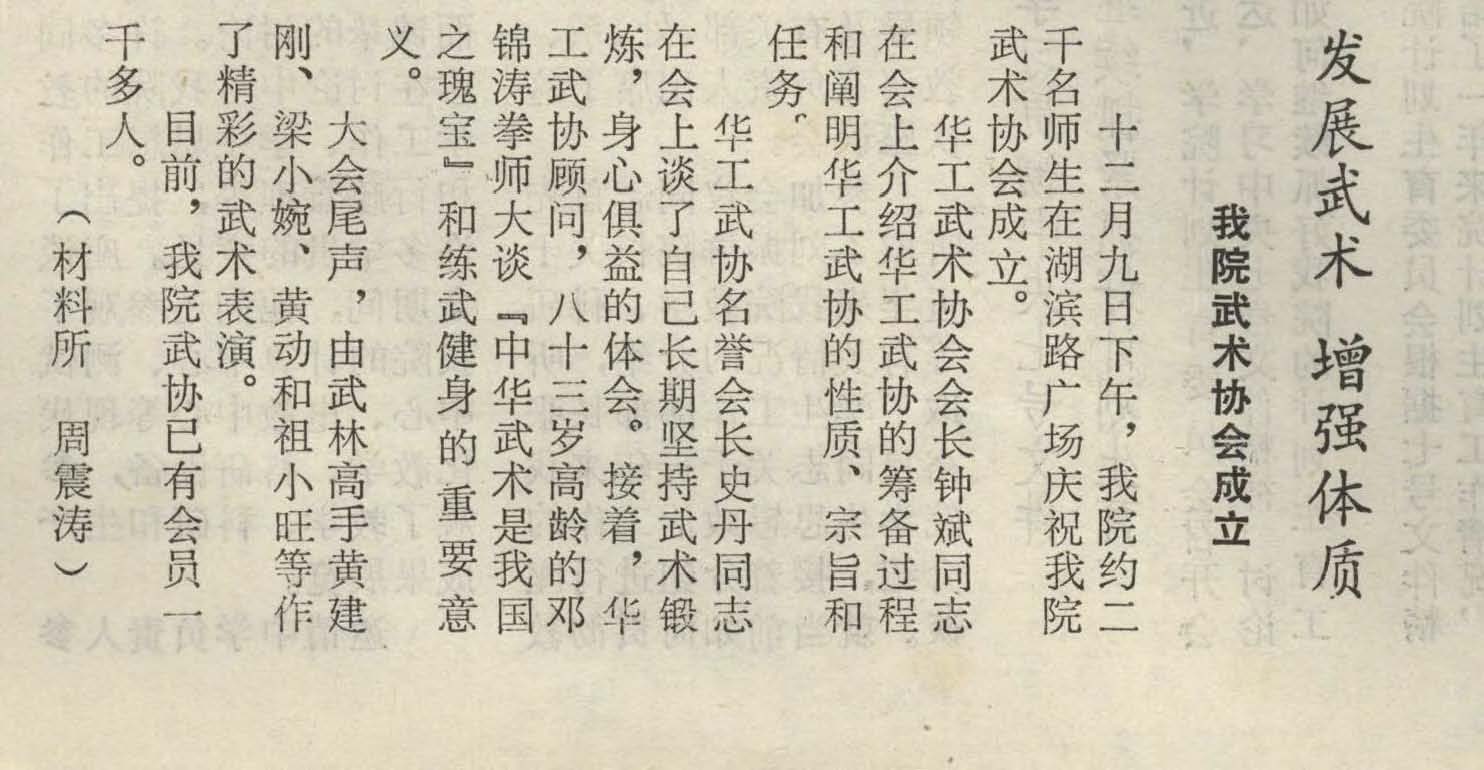 发展武术 增强体质
我院武术协会成立
十二月九日下午，我院约二
千名师生在湖滨路广场庆祝我院
武术协会成立。
华工武术协会会长钟斌同志
在会上介绍华工武协的筹备过程
和阐明华工武协的性质、宗旨和
任务。
华工武协名誉会长史丹同志
在会上谈了自己长期坚持武术锻
炼，身心俱益的体会。接着，华
工武协顾问，八十三岁高龄的邓
锦涛拳师大谈『中华武术是我国
之瑰宝』和练武健身的重要意
义。
大会尾声，由武林高手黄建
刚、梁小婉、黄动和祖小旺等作
了精彩的武术表演。
目前，我院武协已有会员一
千多人。
（材料所 周震涛）